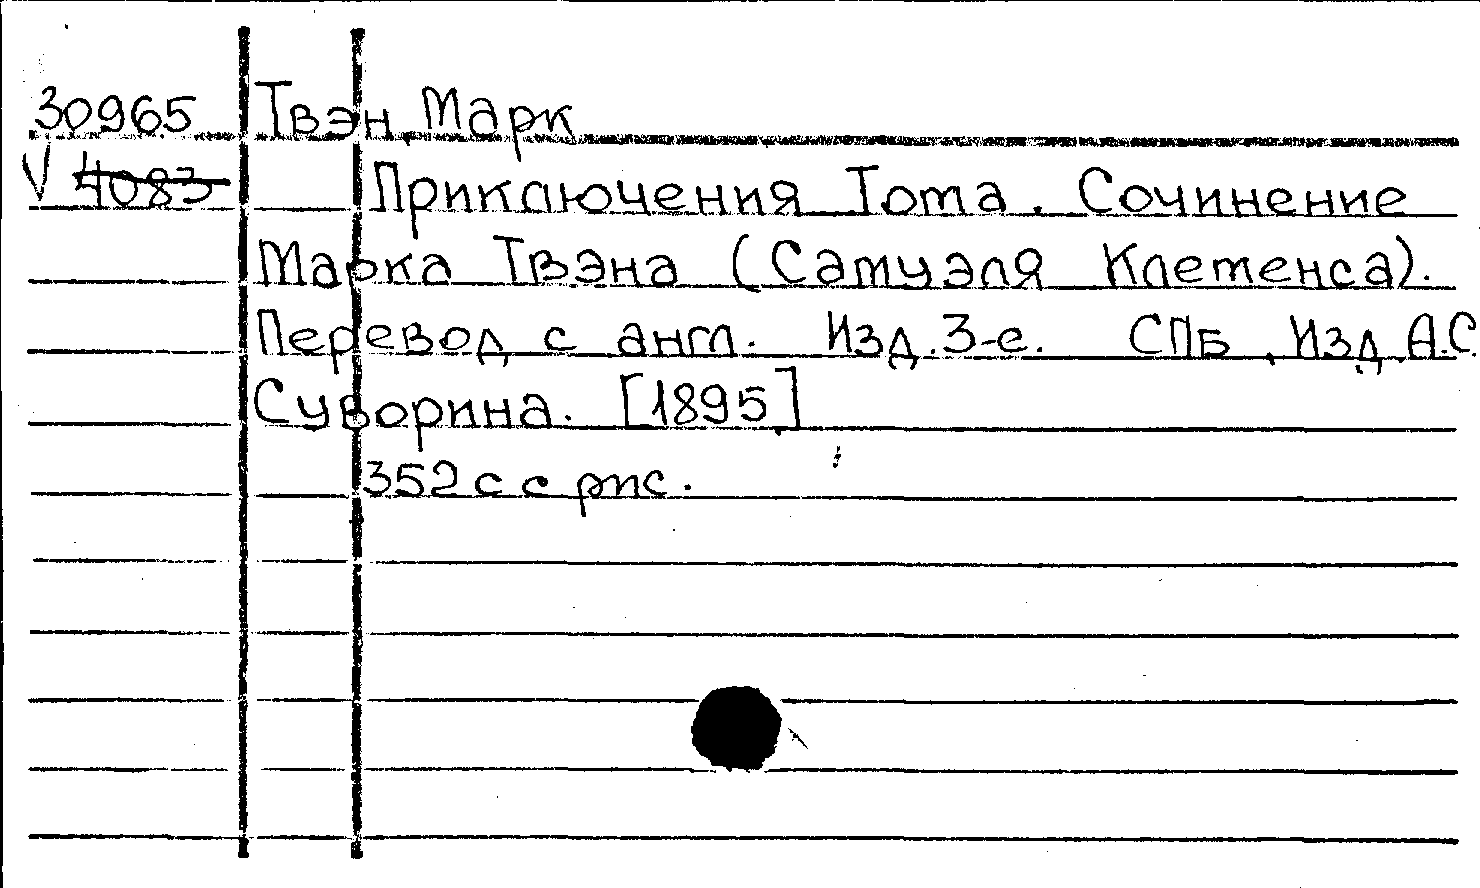 30965 Твэн, Марк
V 4083 Приключения Тома. Сочинение
Марка Твэна (Самуэля Клеменса).
Перевод с англ. Изд. 3-е. СПБ, Изд. А.С.
Суворина. [1895]
352 с с рис.